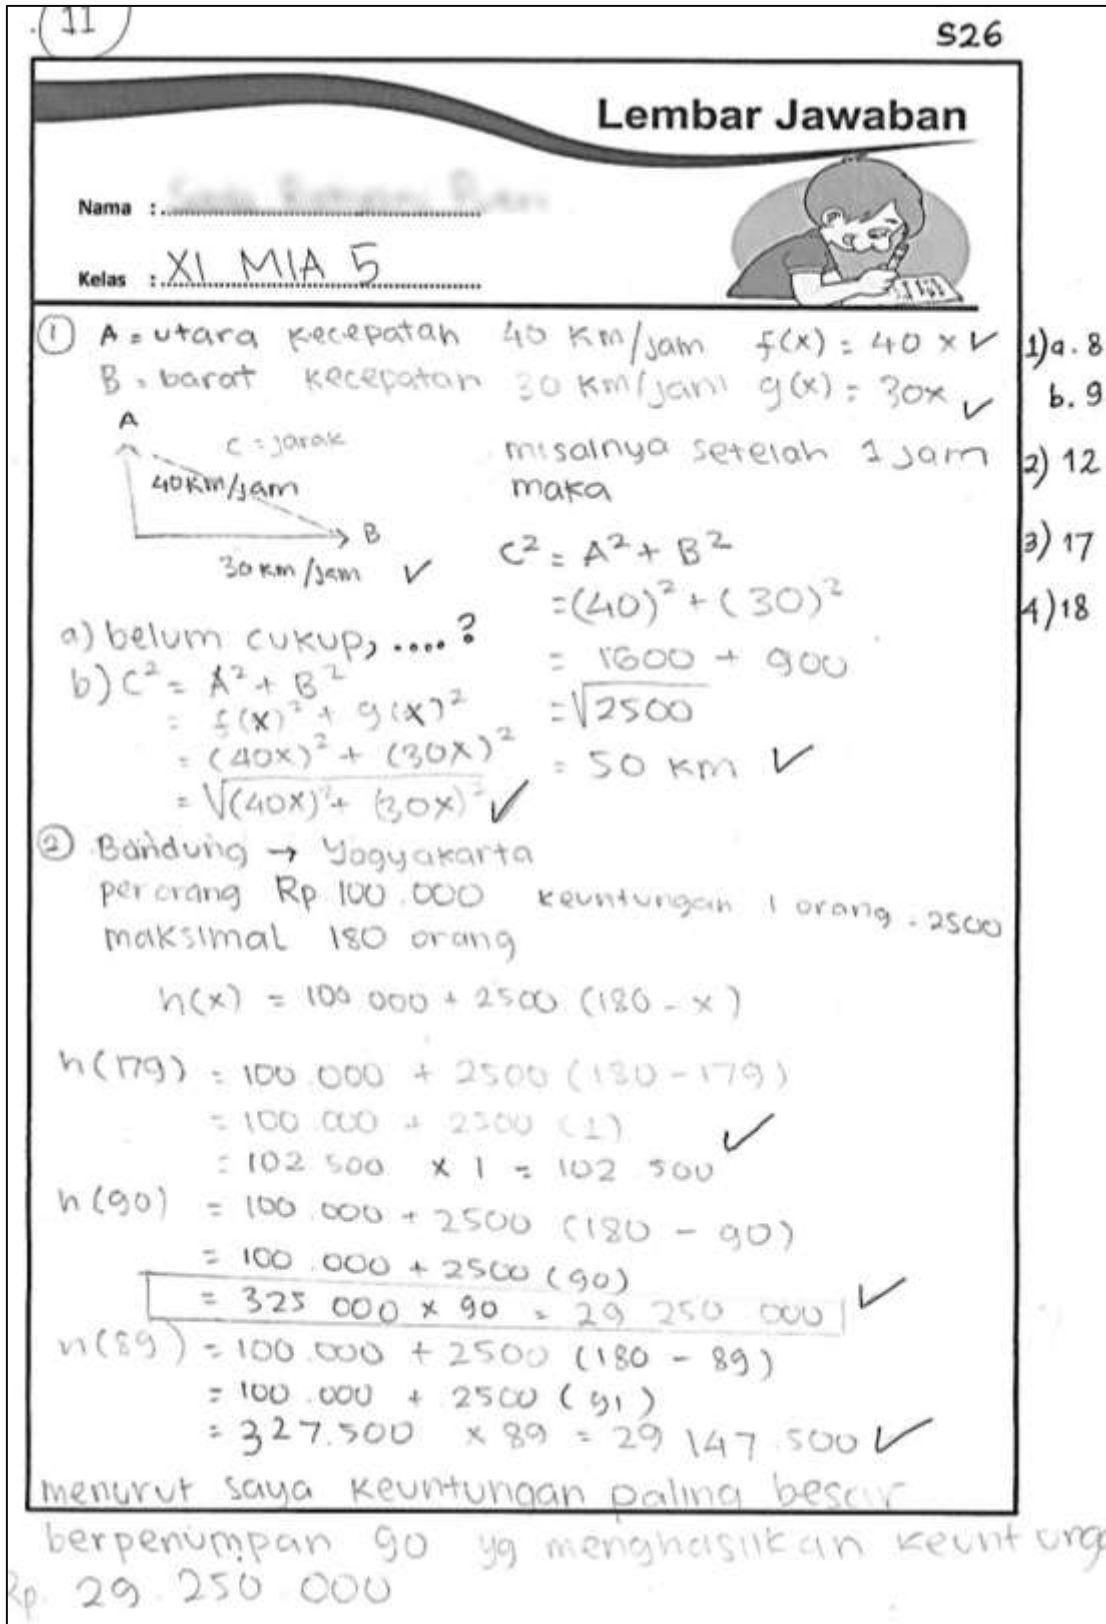 11
S26
Lembar Jawaban
Nama :
Kelas : XI MIA 5
① A = utara kecepatan 40 Km/jam f(x) = 40 x ✓
B = barat kecepatan 30 Km/jam g(x) = 30x ✓
A
C = jarak
40Km/jam
B
30 Km/jam ✓
misalnya setelah 1 jam
maka
C² = A² + B²
= (40)² + (30)²
= 1600 + 900
= √2500
= 50 Km ✓
a) belum cukup, ....?
b) C² = A² + B²
= f(x)² + g(x)²
= (40x)² + (30x)²
= √(40x)² + (30x)² ✓
② Bandung → Yogyakarta
perorang Rp. 100.000 keuntungan 1 orang = 2500
maksimal 180 orang
h(x) = 100 000 + 2500 (180 - x)
h(179) = 100.000 + 2500 (180 - 179)
= 100.000 + 2500 (1)
= 102 500 x 1 = 102 500 ✓
h(90) = 100.000 + 2500 (180 - 90)
= 100.000 + 2500 (90)
= 325 000 x 90 = 29 250 000 ✓
h(89) = 100.000 + 2500 (180 - 89)
= 100.000 + 2500 (91)
= 327.500 x 89 = 29 147.500 ✓
menurut saya keuntungan paling besar
berpenumpan 90 yg menghasilkan keuntung
Rp. 29.250.000
1) a. 8
b. 9
2) 12
3) 17
4) 18